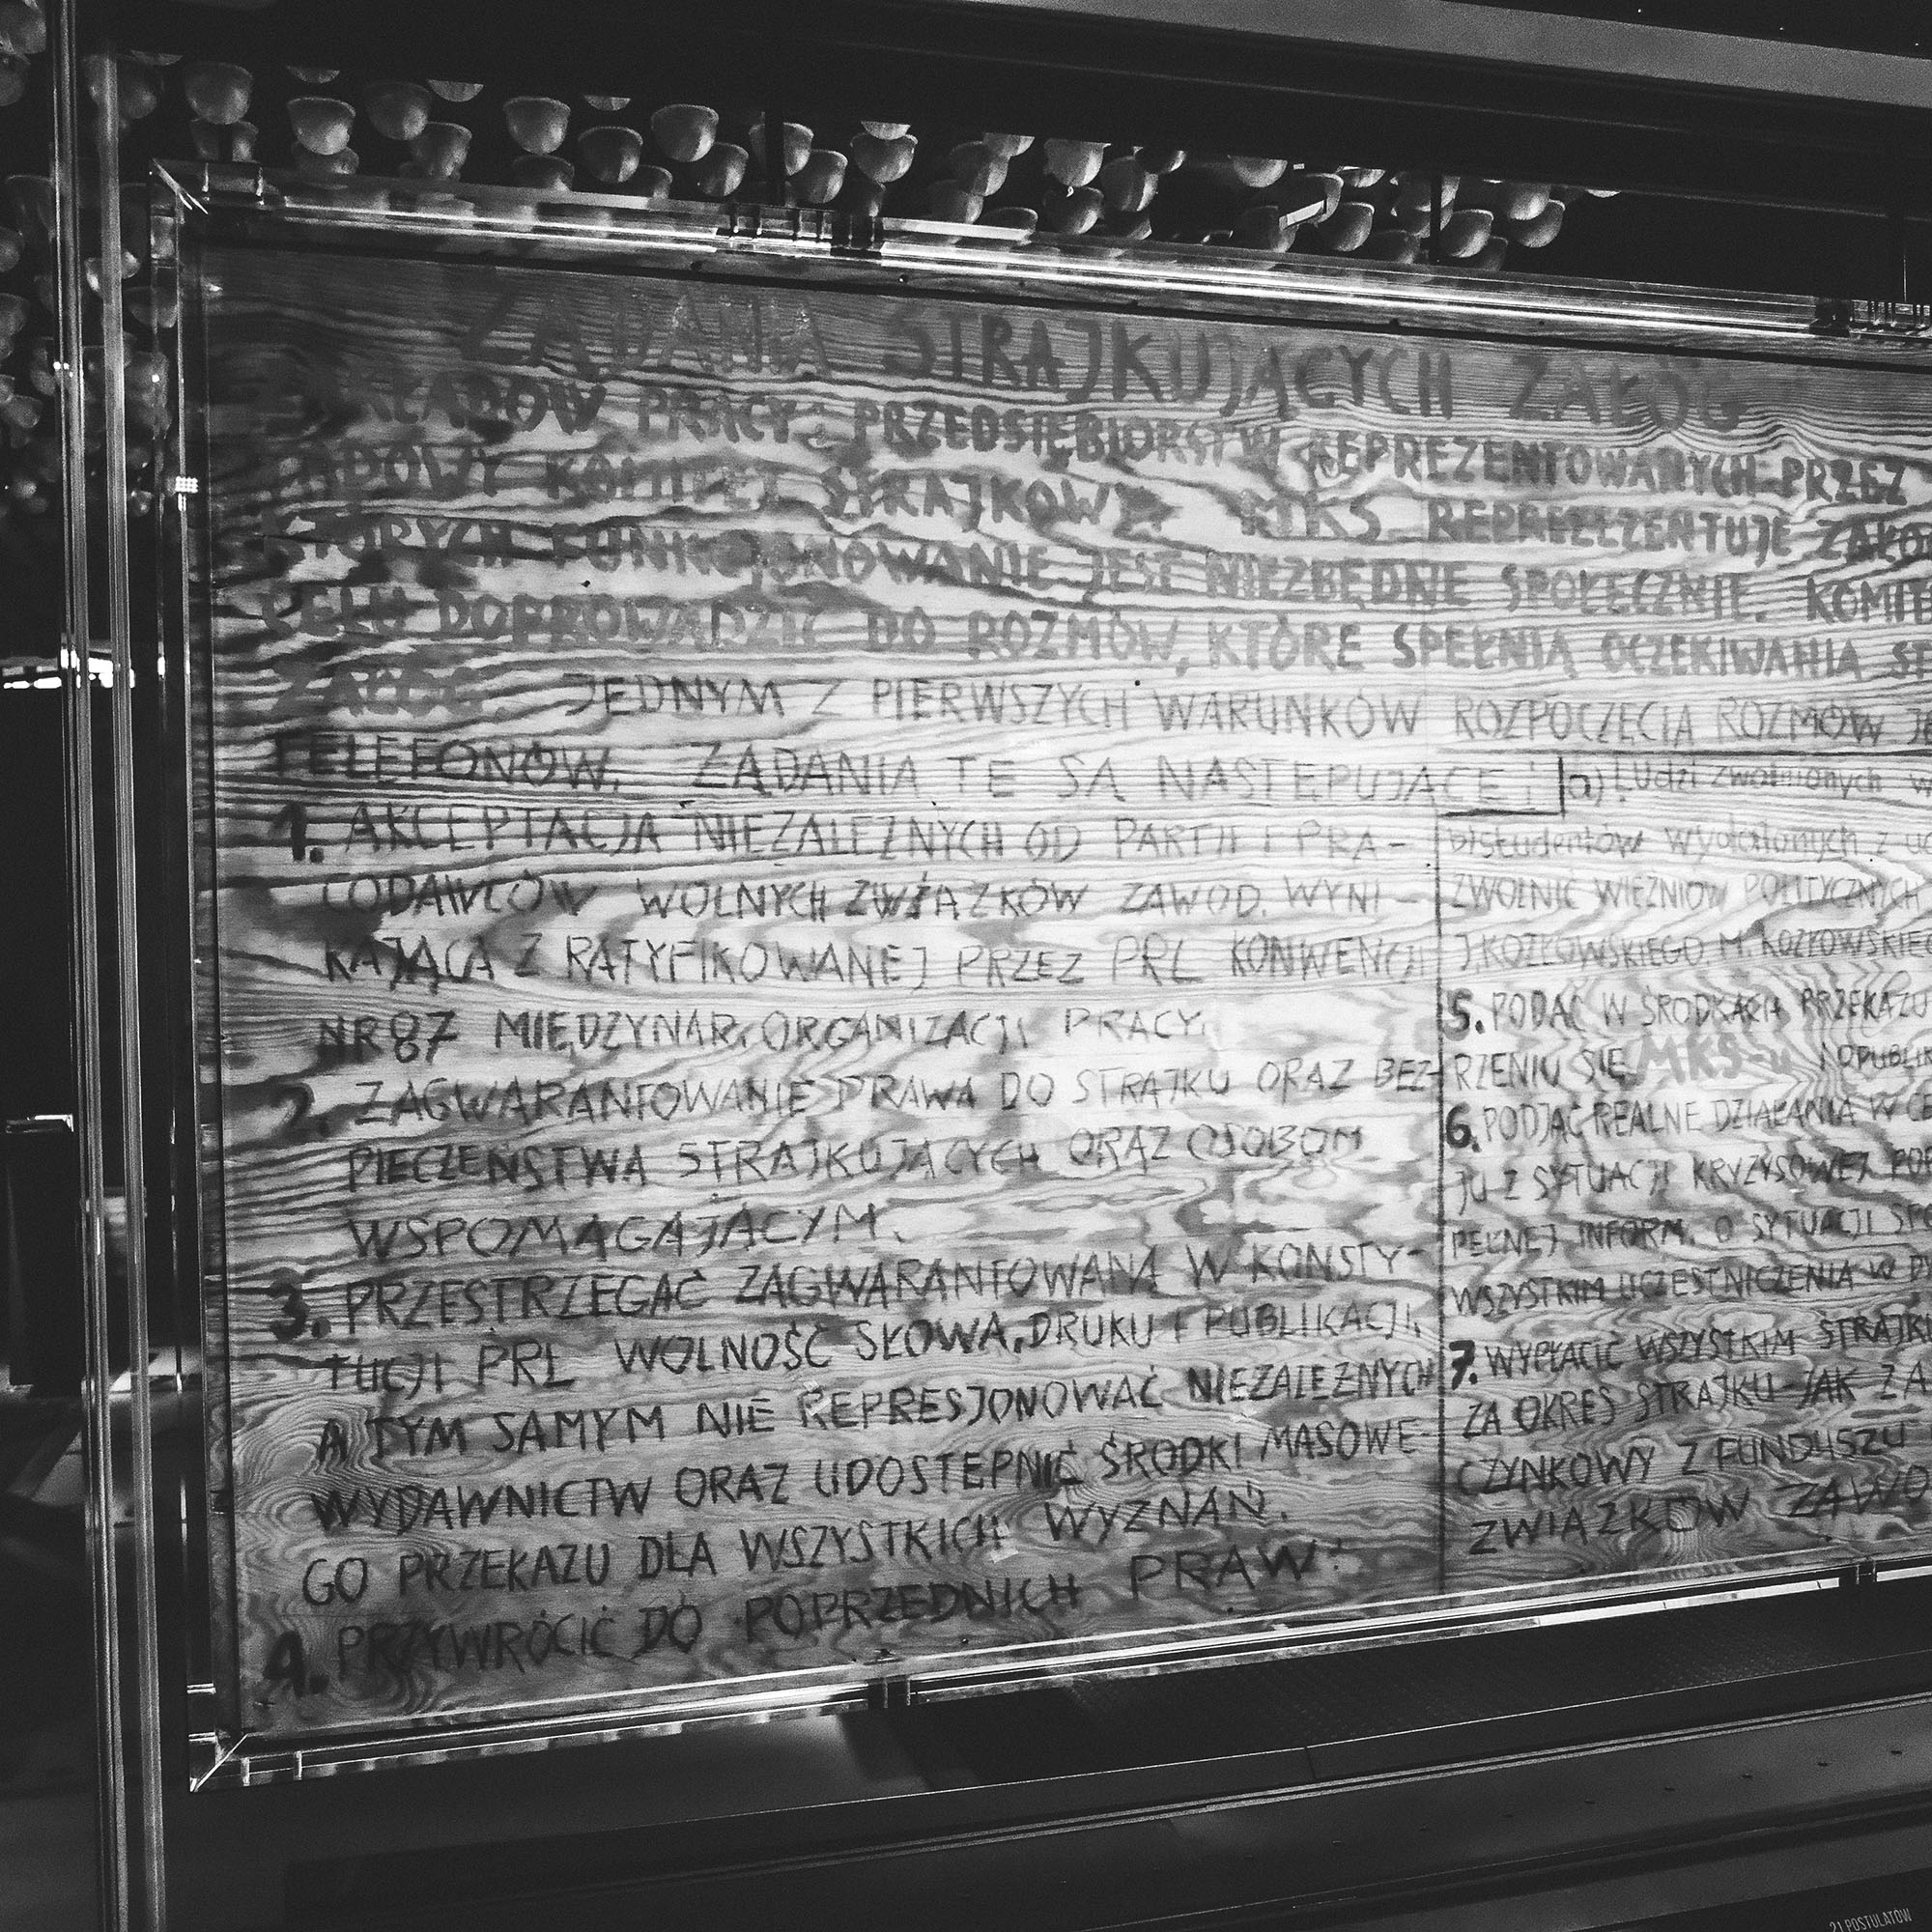 ŻĄDANIA STRAJKUJĄCYCH ZAŁÓG
PRACY I PRZEDSIĘBIORSTW REPREZENTOWANYCH PRZEZ
STRAJKOWY. MKS REPREZEZENTUJE
KTÓRYCH FUNKCJONOWANIE JEST NIEZBĘDNE SPOŁECZNIE.
CELU DOPROWADZIĆ DO ROZMÓW, KTÓRE SPEŁNIĄ OCZEKIWANIA
ZAŁÓG. JEDNYM Z PIERWSZYCH WARUNKÓW ROZPOCZĘCIA ROZMÓW
TELEFONÓW. ŻĄDANIA TE SĄ NASTĘPUJĄCE:
1. AKCEPTACJA NIEZALEŻNYCH OD PARTII I PRA-
CODAWCÓW WOLNYCH ZWIĄZKÓW ZAWOD. WYNI-
KAJĄCA Z RATYFIKOWANEJ PRZEZ PRL KONWENCJI
NR 87 MIĘDZYNAR. ORGANIZACJI PRACY.
2. ZAGWARANTOWANIE PRAWA DO STRAJKU ORAZ BEZ-
PIECZEŃSTWA STRAJKUJĄCYCH ORAZ OSOBOM
WSPOMAGAJĄCYM.
3. PRZESTRZEGAĆ ZAGWARANTOWANĄ W KONSTY-
TUCJI PRL WOLNOŚĆ SŁOWA, DRUKU I PUBLIKACJI,
A TYM SAMYM NIE REPRESJONOWAĆ NIEZALEŻNYCH
WYDAWNICTW ORAZ UDOSTĘPNIĆ ŚRODKI MASOWE-
GO PRZEKAZU DLA WSZYSTKICH WYZNAŃ.
4. PRZYWRÓCIĆ DO POPRZEDNICH PRAW:
a) Ludzi zwolnionych
b) studentów wydalonych z
ZWOLNIĆ WIĘŹNIÓW POLITYCZNYCH
J. KOZŁOWSKIEGO, M.
5. PODAĆ W ŚRODKACH
RZENIU SIĘ MKS-u I
6. PODJĄĆ REALNE DZIAŁANIA W
JU Z SYTUACJI KRYZYSOWEJ
PEŁNEJ INFORM. O SYTUACJI
WSZYSTKIM UCZESTNICZENIA W
7. WYPŁACIĆ WSZYSTKIM
ZA OKRES STRAJKU-JAK ZA
CZYNKOWY Z FUNDUSZU
ZWIĄZKÓW
21 POSTULATÓW